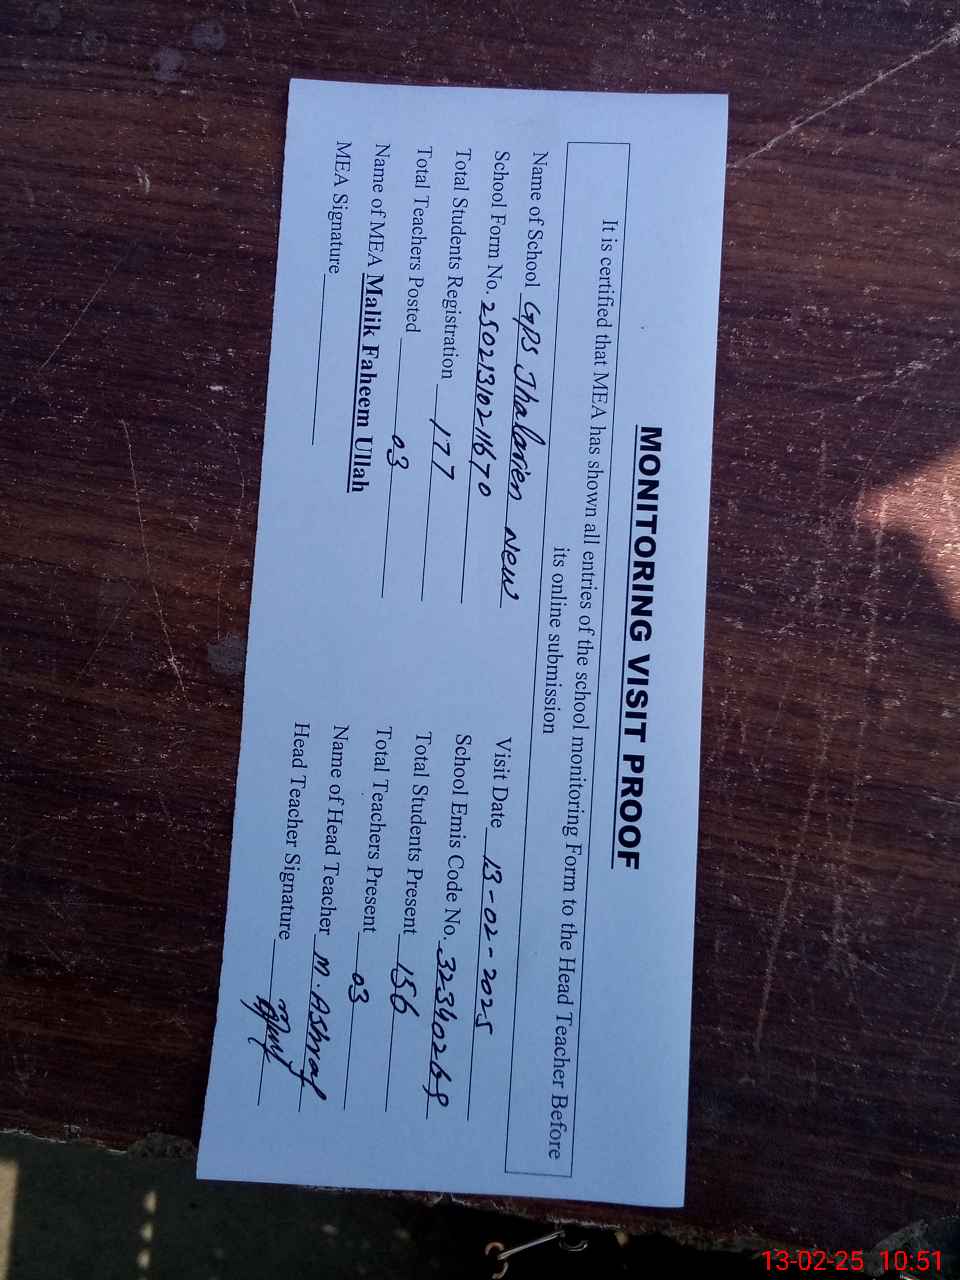 MONITORING VISIT PROOF
It is certified that MEA has shown all entries of the school monitoring Form to the Head Teacher Before
its online submission
Name of School GPS Thalorien New
Visit Date 13-02-2025
School Form No. 25021310211670
School Emis Code No. 32340269
Total Students Registration 177
Total Students Present 156
Total Teachers Posted 03
Total Teachers Present 03
Name of MEA Malik Faheem Ullah
Name of Head Teacher M. Ashraf
MEA Signature
Head Teacher Signature
13-02-25 10:51